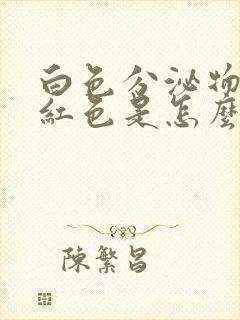 白色分泌物
紅色是怎麼
陳繁昌